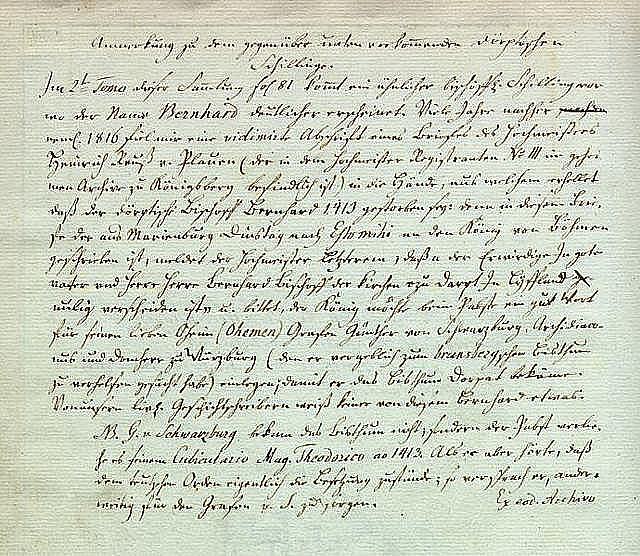 Anmerkung zu dem gegenüber unten vorkommenden dörptschen
Schillinge.
Im 2t. Tomo dieser Samlung fol 81 komt ein ähnlicher bischöffl. Schilling vor
wo der Name Bernhard deutlicher erscheinet. Viele Jahre nachher
neml. 1816 fiel mir eine vidimirte Abschrift eines Briefes des Hochmeisters
Heinrich Reuß v. Plauen (der in dem Hochmeister Registranten No III im gehei-
men Archive zu Königsberg befindlich ist) in die Hände, aus welchem erhellet
daß der dörptsche Bischoff Bernhard 1413 gestorben sey: denn in diesem Brie-
fe der aus Marienburg Dinstag nach Estomihi an den König von Böhmen
geschrieben ist, meldet der Hochmeister Letzterem, daß der Erwirdige In gote
vater und Herre Herre Bernhard Bischof der kirchen czu Darpt In Lyffland
verscheiden ist u. bittet, der König möchte beim Pabste ein gut Wort
für seinen lieben Oheim (Ohemen) Grafen Günther von Schwarzburg, Archidiaco-
nus und Domherr zu Wurzburg (dem er vergeblich zum Bisthum
zu verhelfen gesucht habe) einlegen, damit er das Bisthum Dorpat bekäme.
Von unsern livl. Geschichtschreibern weiß keiner von diesem Bernhard etwas.
NB. G. v. Schwarzburg bekam das Bisthum nicht, sondern der Pabst verlie-
he es seinem Cubiculario Mag. Theodorico ao 1413. Als er aber hörte, daß
dem teutschen Orden eigentlich die Besetzung zustünde; so versprach er, ander-
weitig für den Grafen v. S. zu sorgen. Ex eod. Archivo